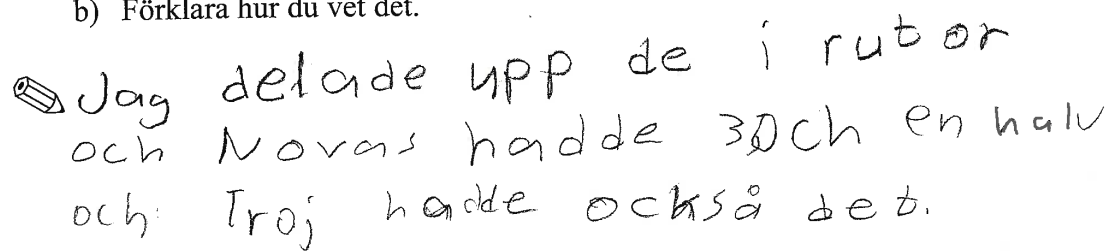 b) Förklara hur du vet det.
Jag delade upp de i rutor
och Novas hadde 3 och en halv
och Troj hadde också det.